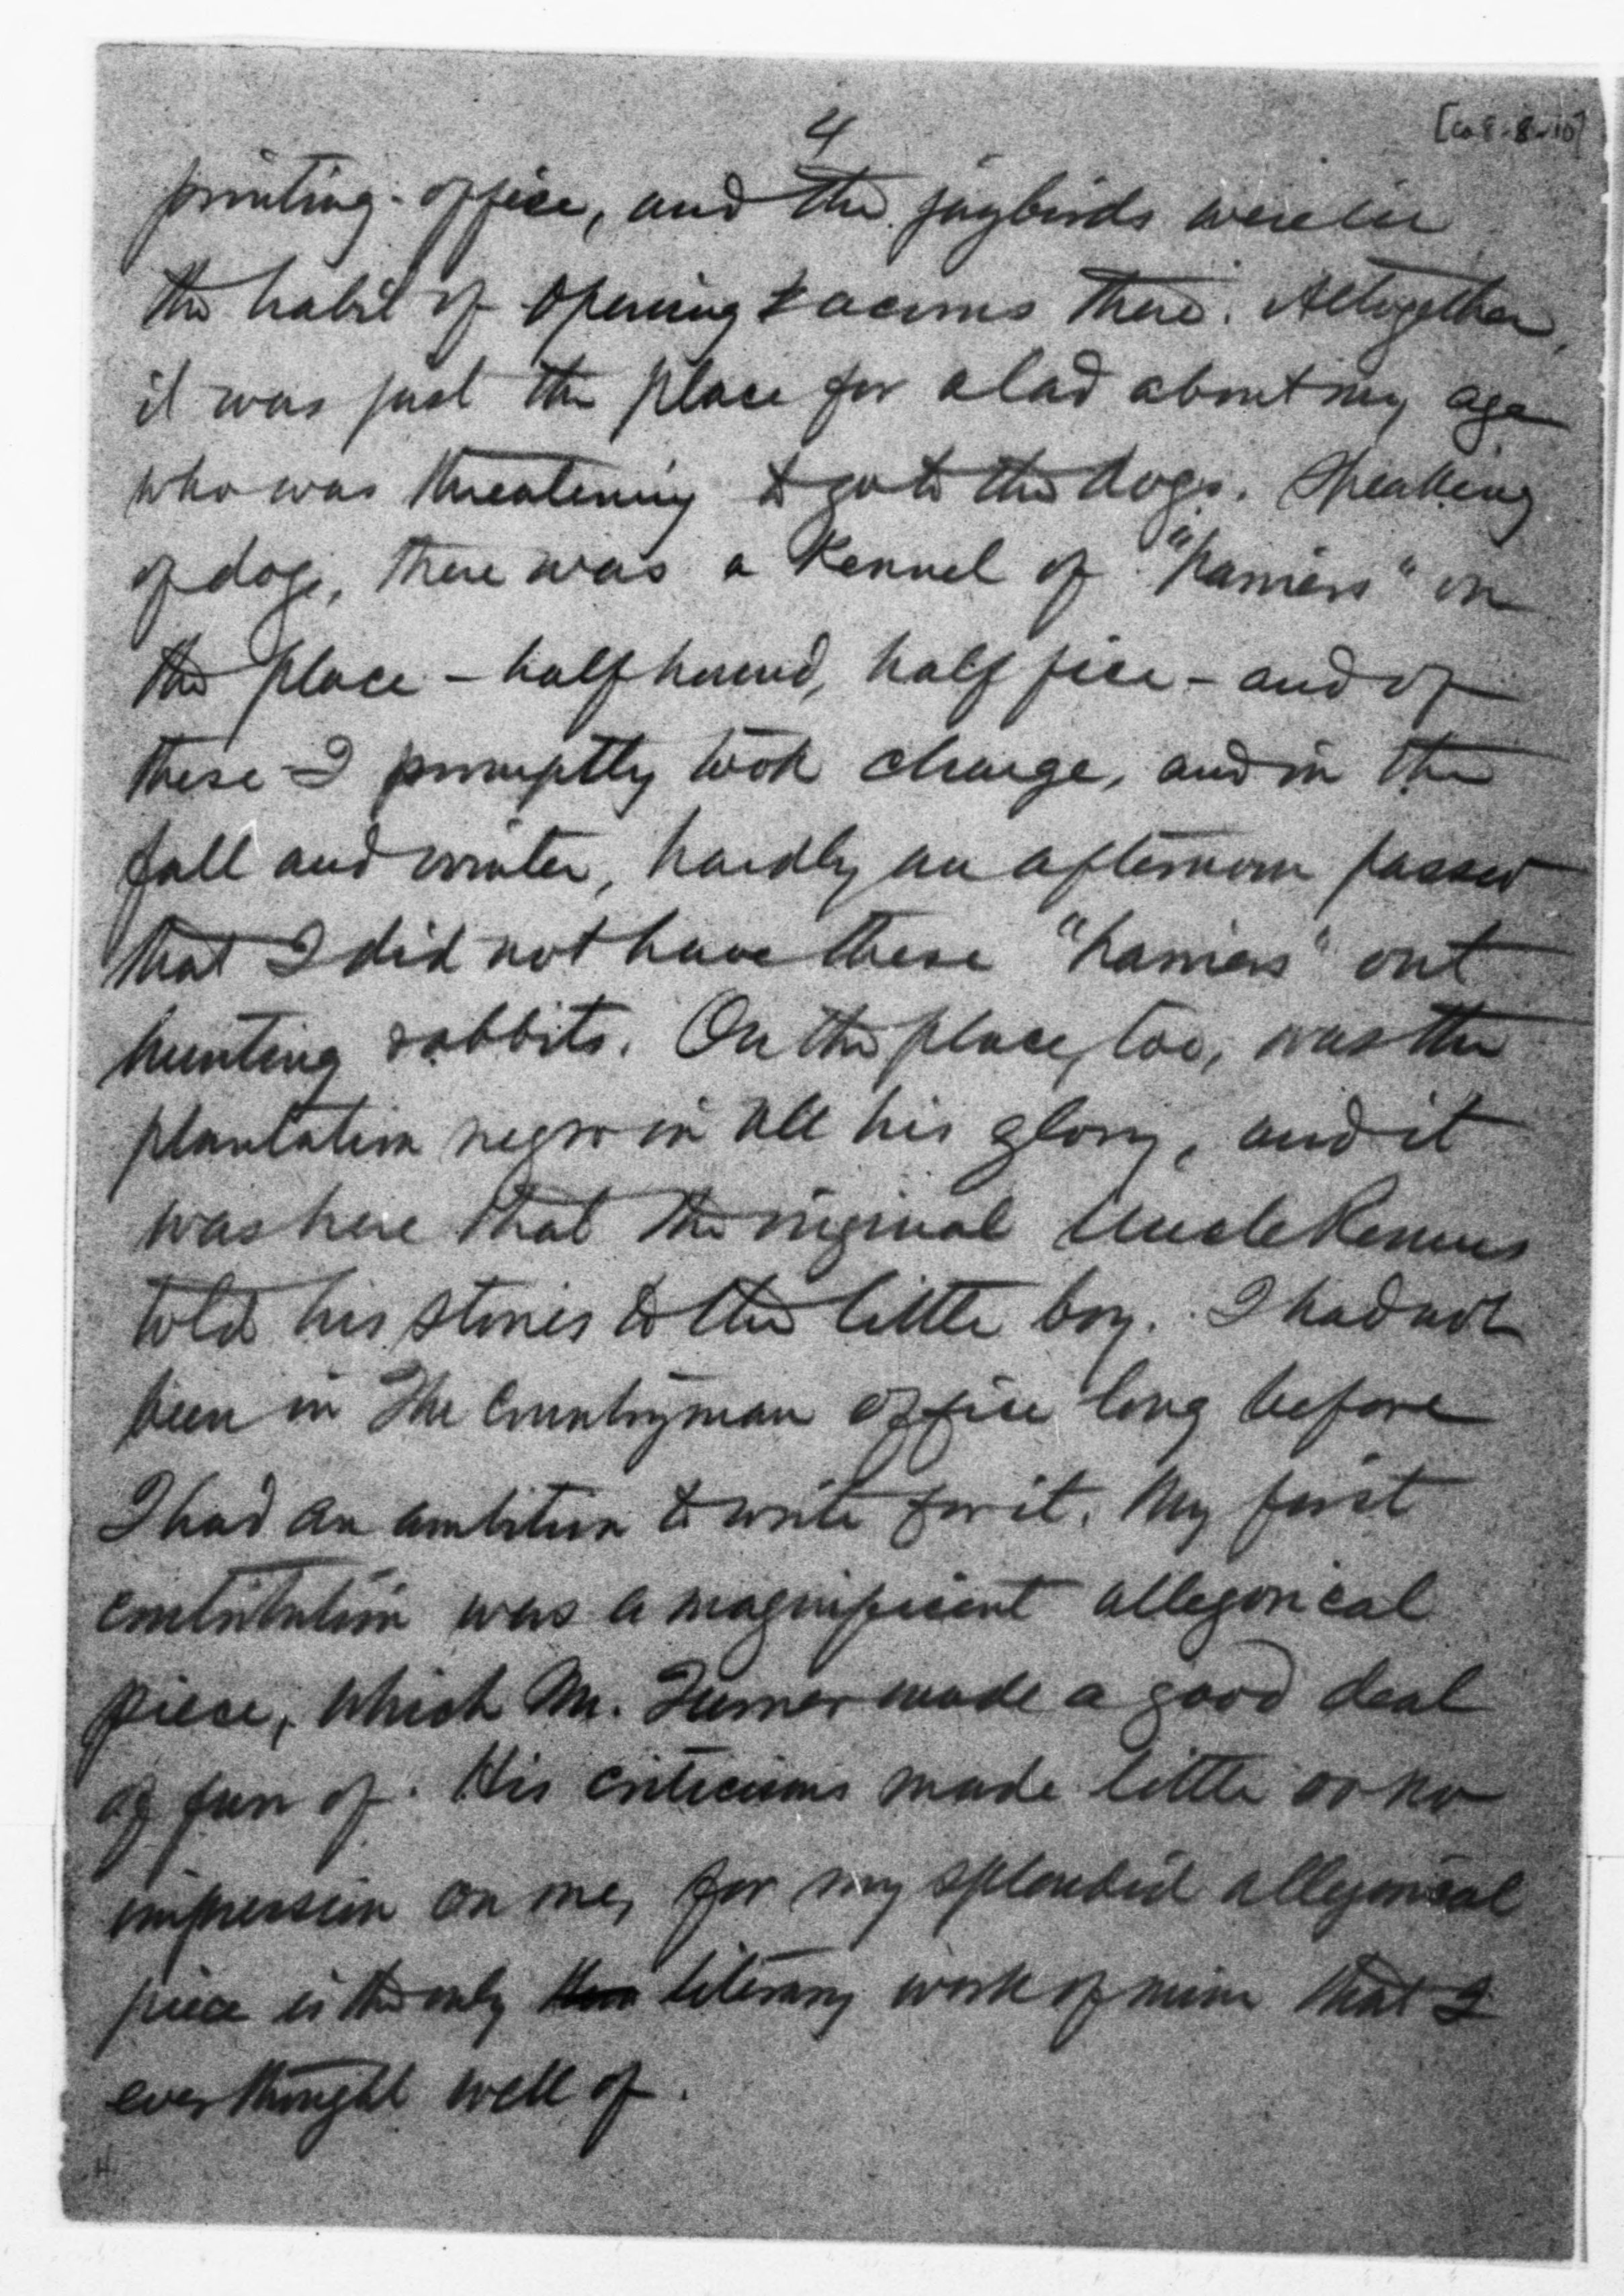 4
printing-office, and the jaybirds were in
the habit of opening acorns there. Altogether,
it was just the place for a lad about my age
who was threatening to go to the dogs. Speaking
of dogs, there was a kennel of "harriers" on
the place – half hound, half fice – and of
these I promptly took charge, and in the
fall and winter, hardly an afternoon passed
that I did not have these "harriers" out
hunting rabbits. On the place, too, was the
plantation negro in all his glory, and it
was here that the original Uncle Remus
told his stories to the little boy. I had not
been in The Countryman office long before
I had an ambition to write for it. My first
contribution was a magnificent allegorical
piece, which Mr. Turner made a good deal
of fun of. His criticisms made little or no
impression on me, for my splendid allegorical
piece is the only literary work of mine that I
ever thought well of.